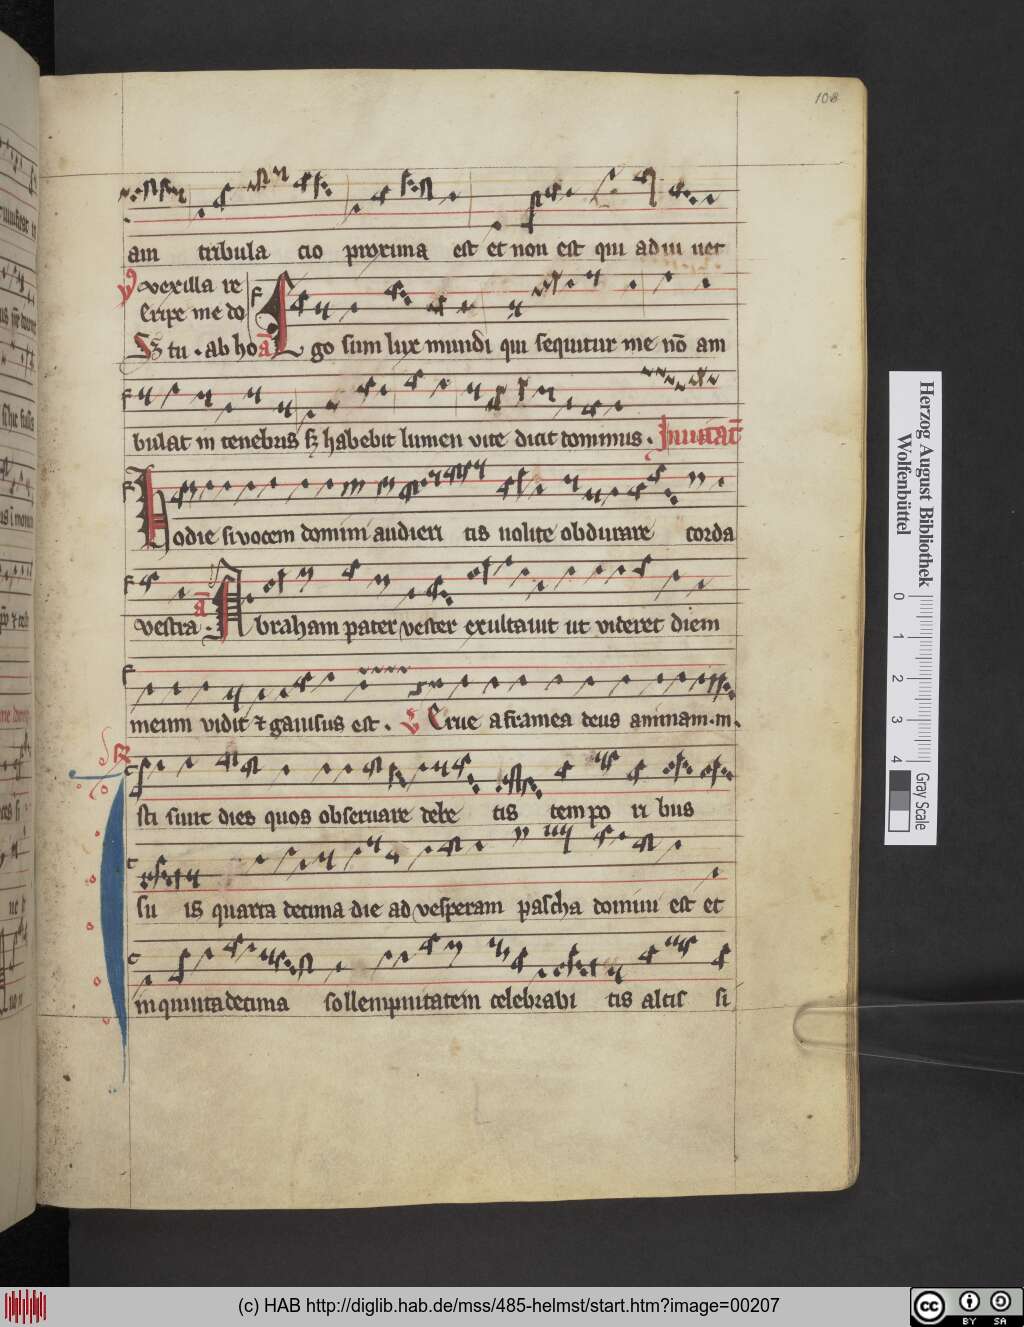 108
am tribula cio proxima est et non est qui adiu uet
V vexilla re
Eripe me do
tu . ab ho a Ego sum lux mundi qui sequitur me nō am
bulat in tenebris sꝫ habebit lumen vite dicit dominus . Inuitat
Hodie si vocem domini audieri tis nolite obdurare corda
vestra . a Abraham pater vester exultauit ut videret diem
meum vidit ⁊ gauisus est . V Erue a framea deus animam . m .
sti sunt dies quos obseruare debe tis tempo ri bus
su is quarta decima die ad vesperam pascha domini est et
in quinta decima sollempnitatem celebrabi tis altis si
Herzog August Bibliothek
Wolfenbüttel
0 1 2 3 4
Gray Scale
(c) HAB http://diglib.hab.de/mss/485-helmst/start.htm?image=00207
cc BY SA